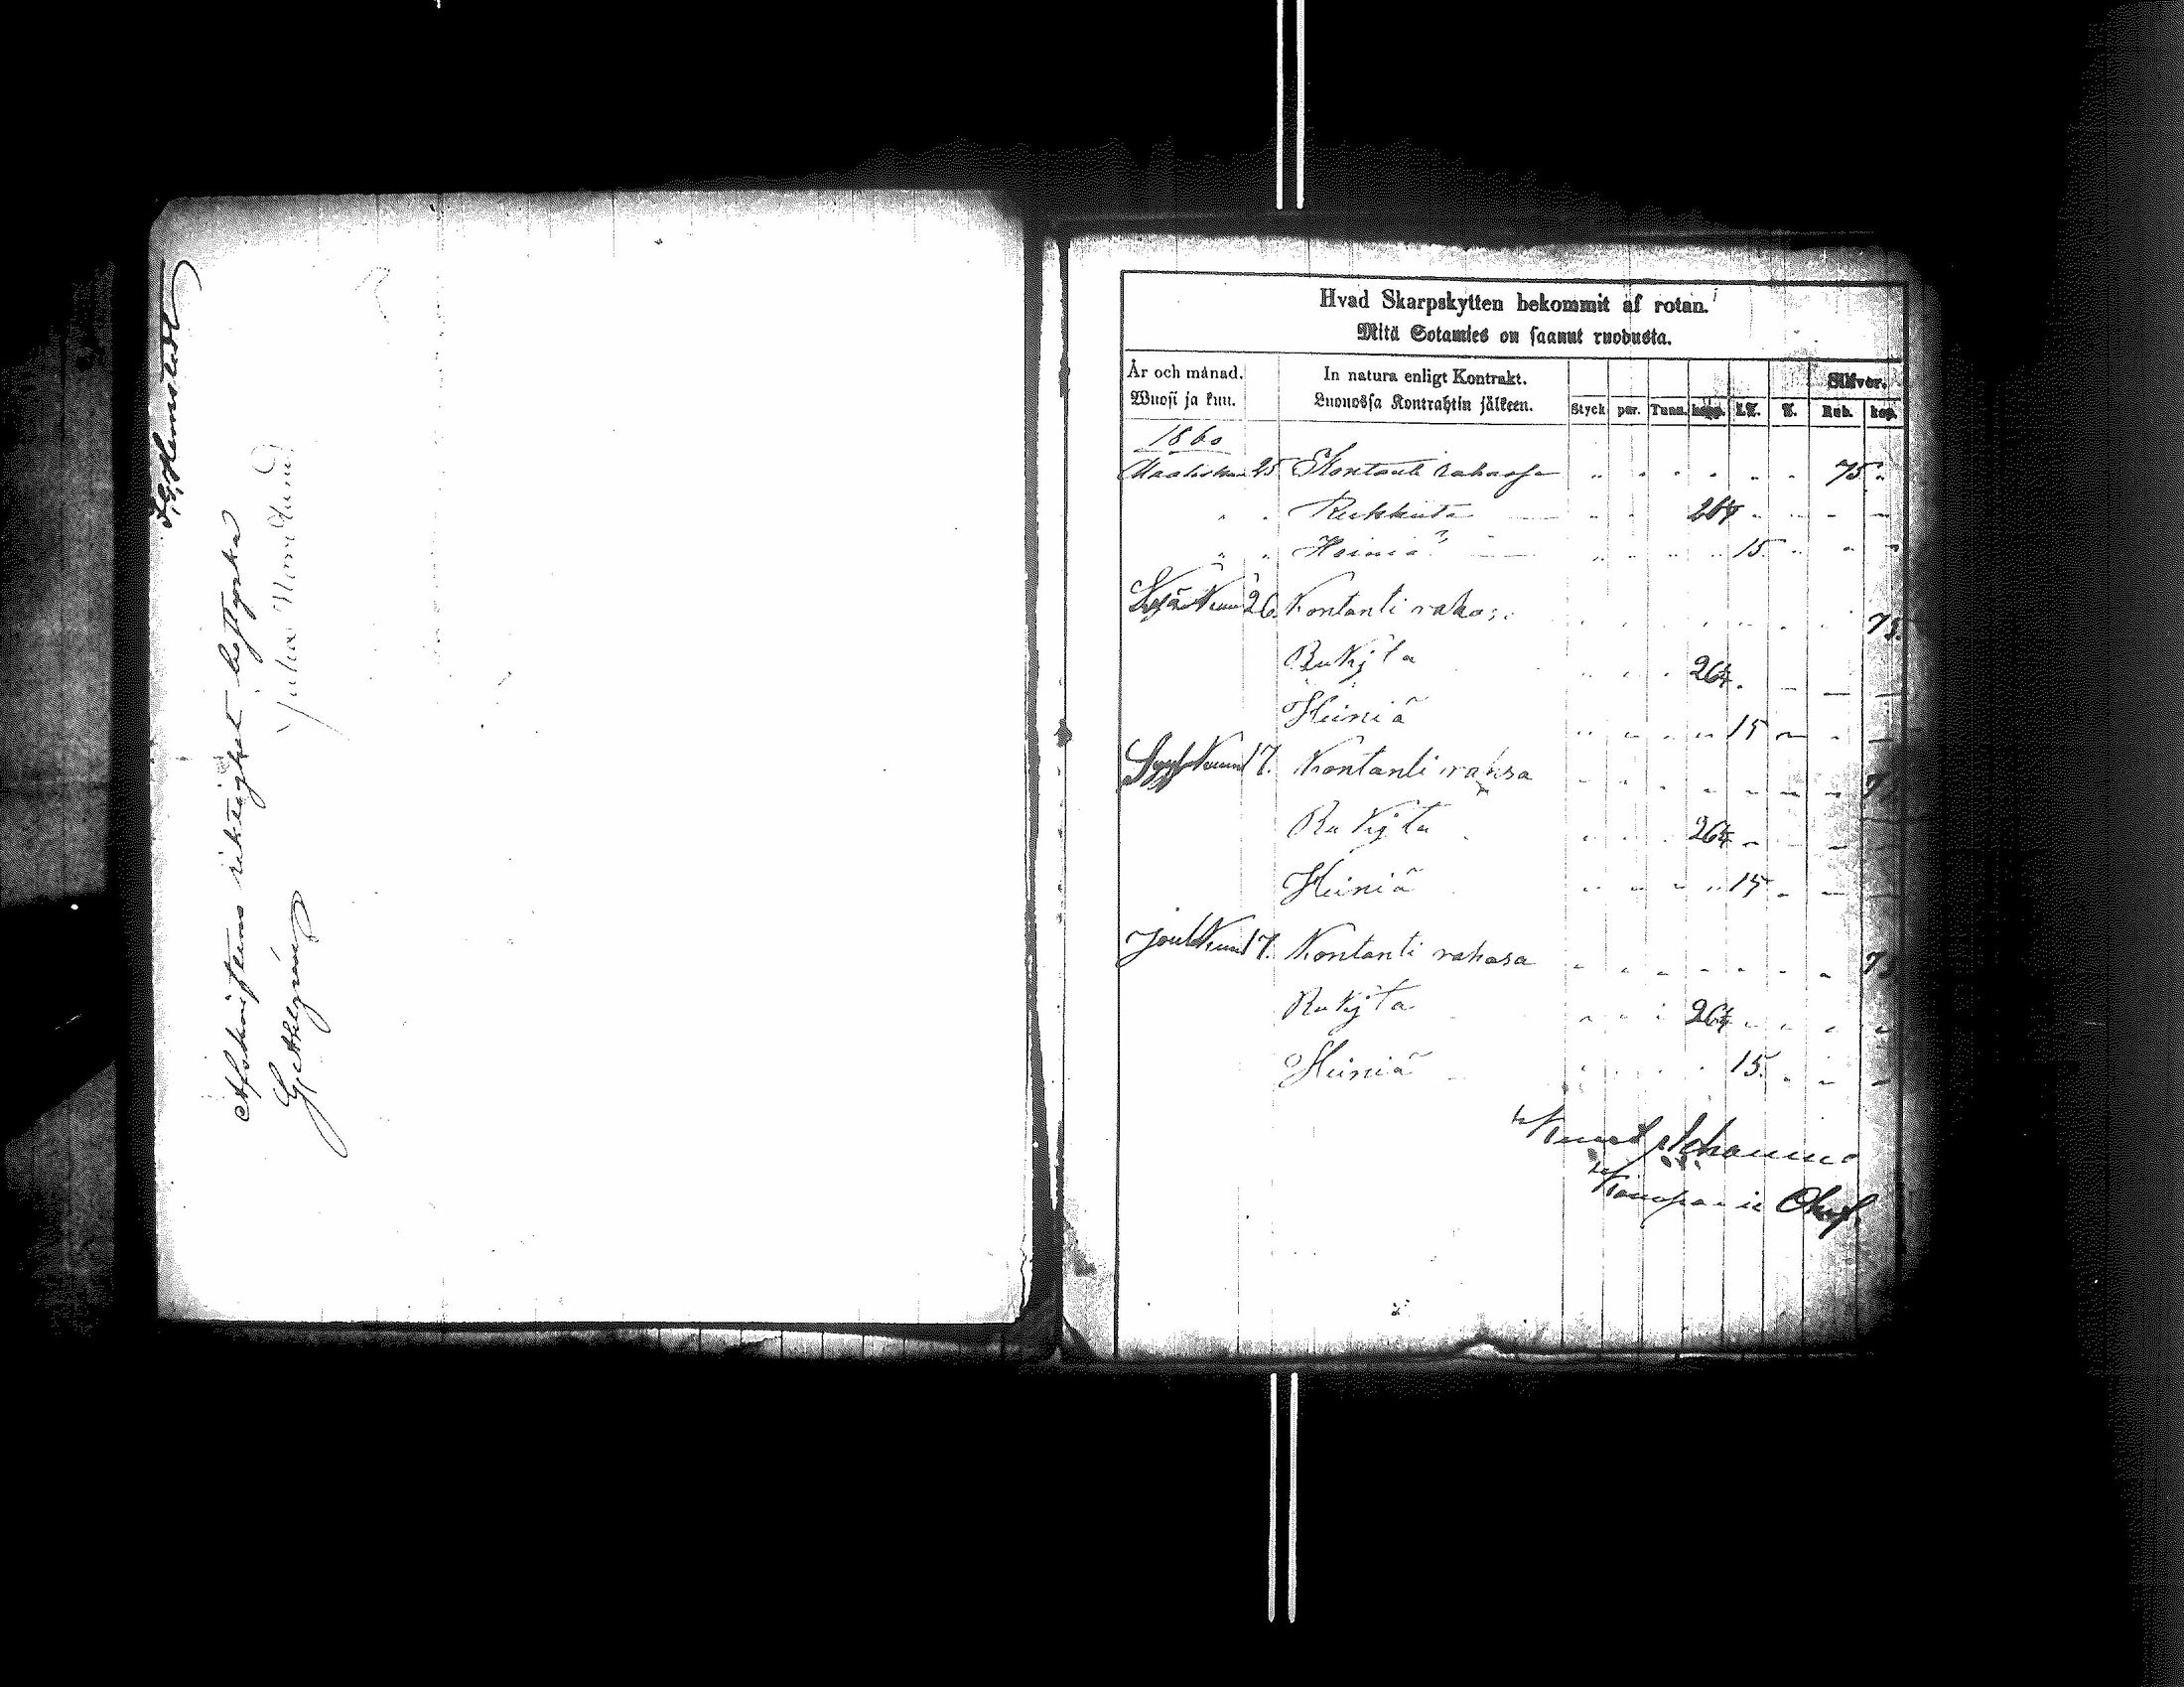 J. G. Hemstedt
Afskriftens riktighet bestyrka
Juhan
G. Ahlgrén
Hvad Skarpskytten bekommit af rotan.
Mitä Sotamies on saanut ruodusta.
År och månad.
Wuosi ja kuu.
In natura enligt Kontrakt.
Luonossa Kontrahtin jälkeen.
Styck par. Tunn. kapp. L℔. ℔. Silfver. Rub. kop.
1860
Maaliskuu 25 Kontanti rahassa " " " " " " 75 "
" " Rukkiita " " 26¼ " - - -
" " Heiniä " " " " 15 " " -
26. Kontanti rahas 75.
Rukijta 26¼ - - -
Heiniä " " " " 15 - - -
Syyskuun 17. Kontanti rahsa - - - - - - -
Rukijta 26¼ - - -
Heiniä " " - " 15 - - -
Joulukuun 17. Kontanti rahasa - - - - - - - 75
Rukijta 26¼ - - - -
Heiniä 15. - - -
Knut
Kompanie